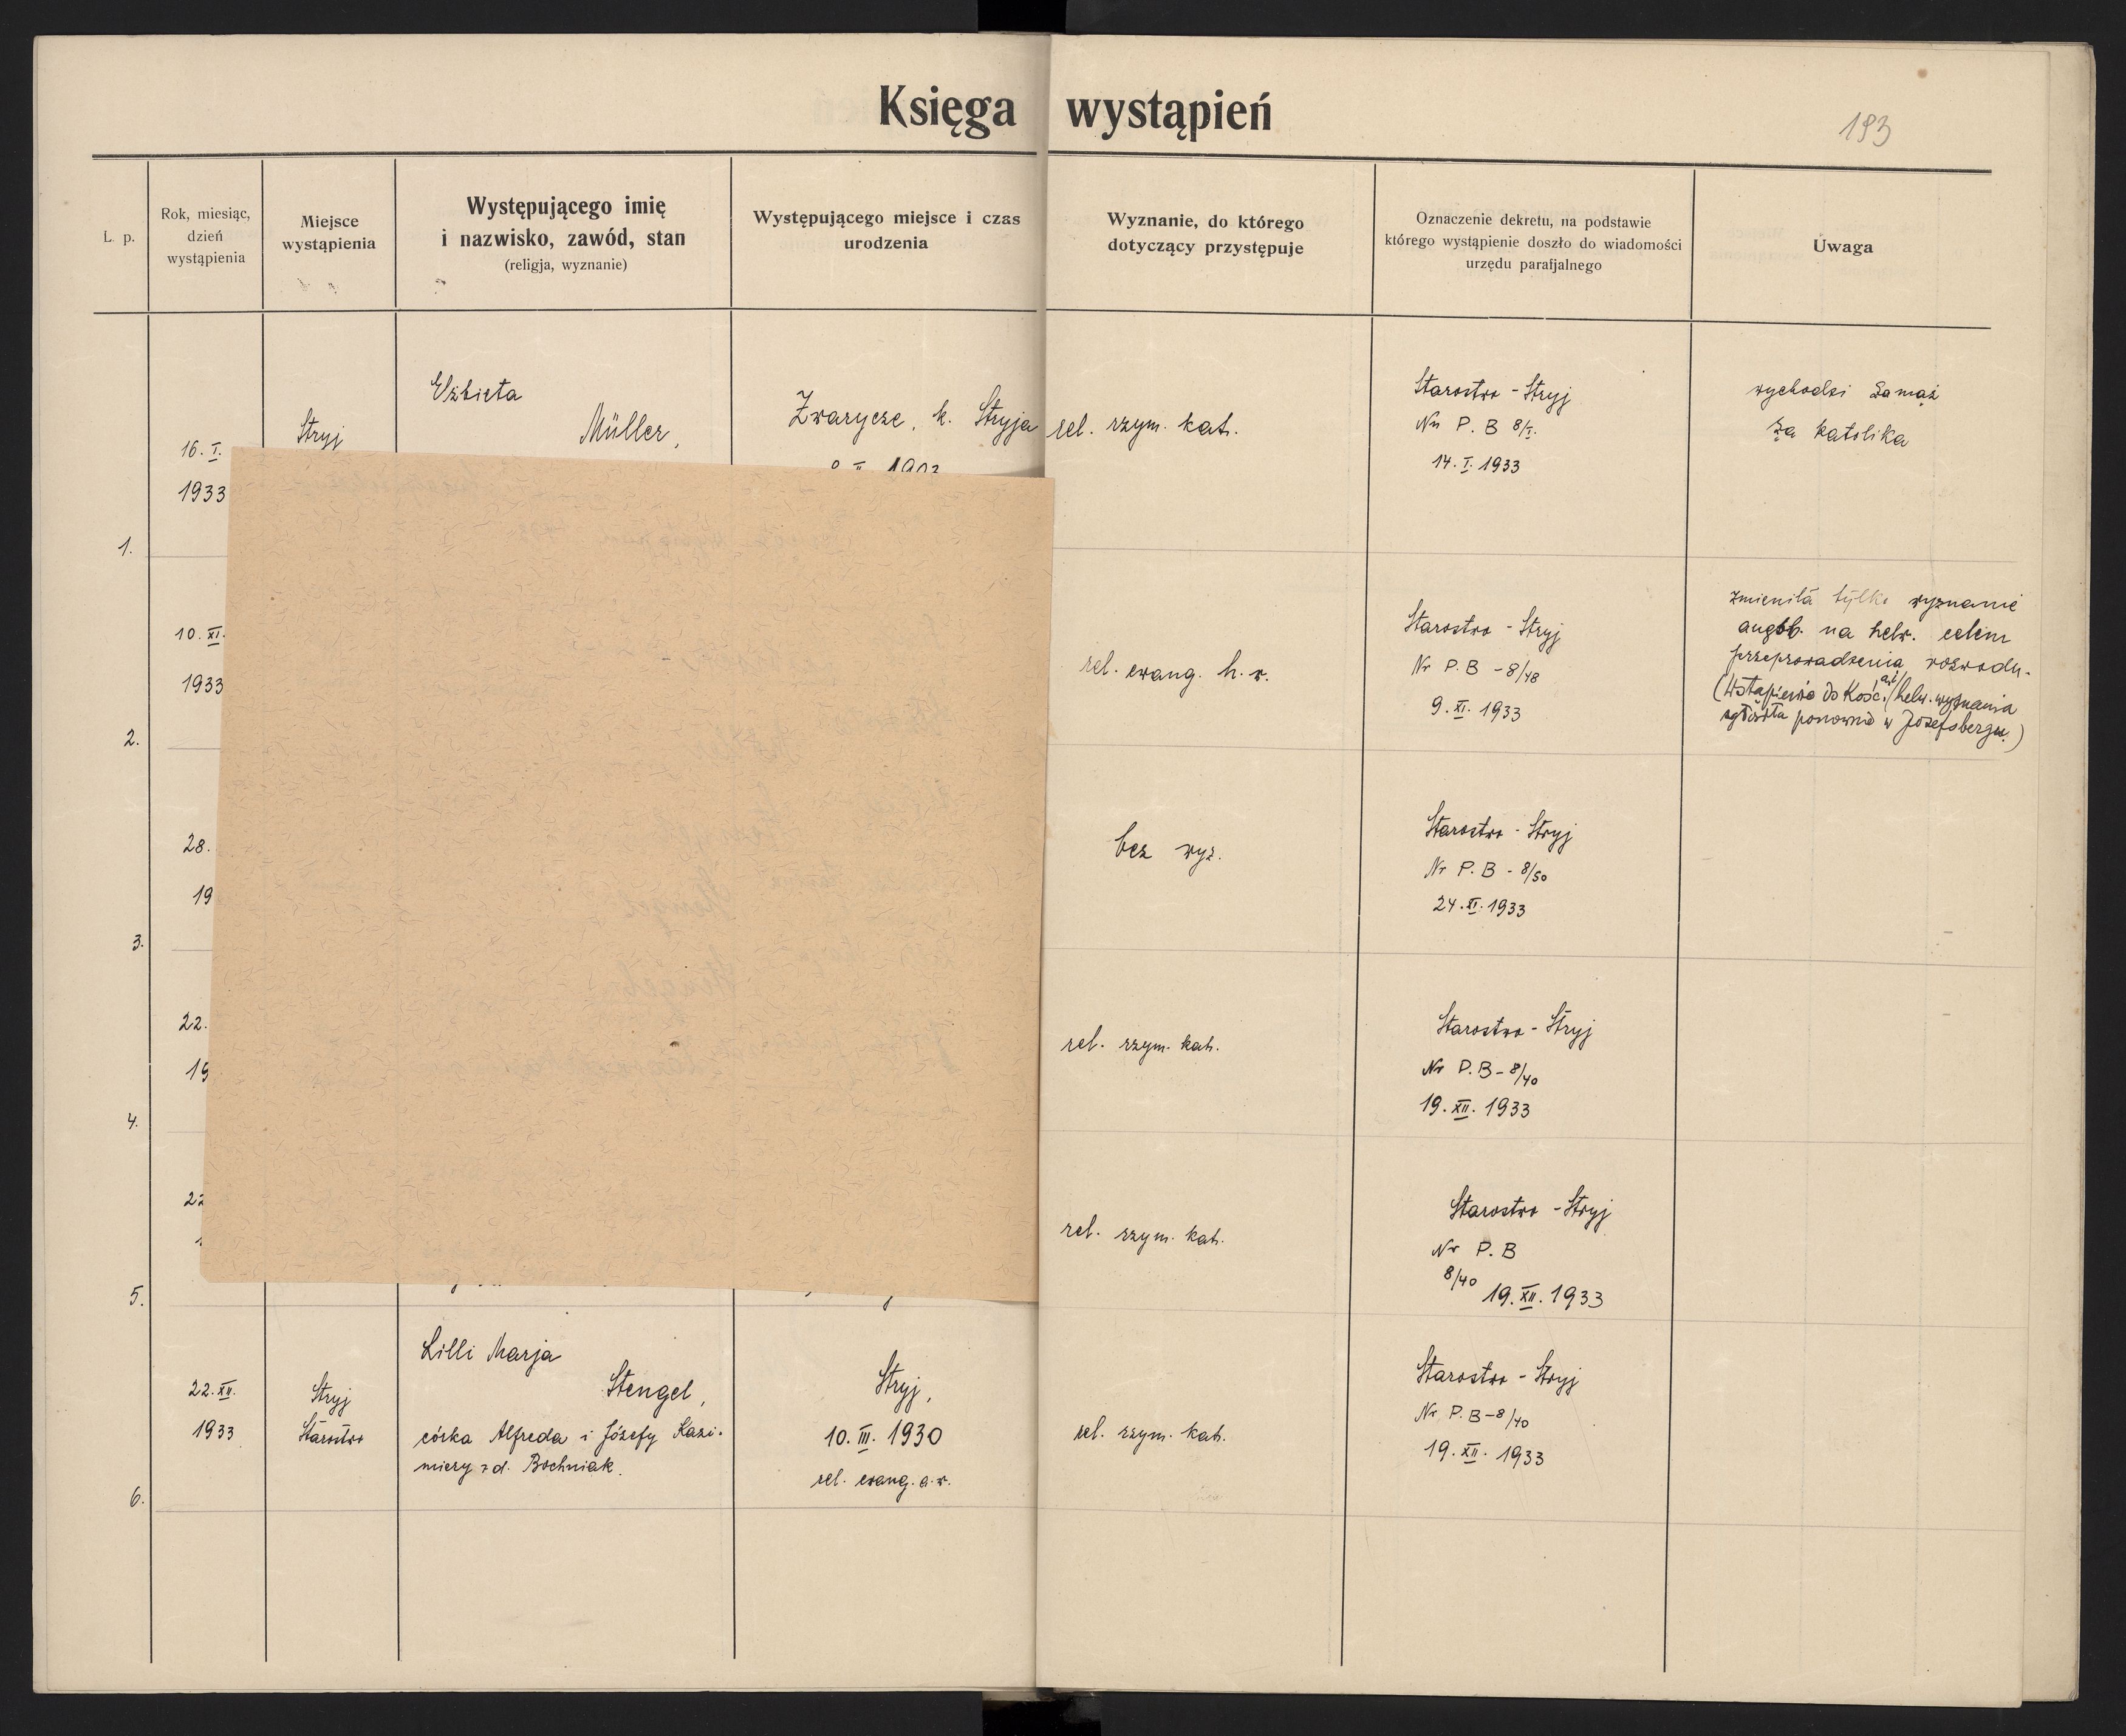 Księga wystąpień
193
L. p.
Rok, miesiąc,
dzień
wystąpienia
Miejsce
wystąpienia
Występującego imię
i nazwisko, zawód, stan
(religja, wyznanie)
Występującego miejsce i czas
urodzenia
Wyznanie, do którego
dotyczący przystępuje
Oznaczenie dekretu, na podstawie
którego wystąpienie doszło do wiadomości
urzędu parafjalnego
Uwaga
1.
16. I.
1933
Stryj
Elżbieta
Müller,
Zwarycze, k. Stryja
rel. rzym. kat.
Starostwo - Stryj
Nr P. B 8/I.
14. I. 1933
wychodzi zamąż
za katolika
2.
10. XI.
1933
rel. ewang. h. w.
Starostwo - Stryj
Nr P. B - 8/48
9. XI. 1933
zmieniła tylko wyznanie
augsb. na helw. celem
przeprowadzenia rozwodu.
(Wstąpienie do Kość. helw. wyznania
zgłosiła ponownie w Josefsbergu.)
3.
28.
19
bez wyz.
Starostwo - Stryj
Nr P. B - 8/50
24. XI. 1933
4.
22.
19
rel. rzym. kat.
Starostwo - Stryj
Nr P. B - 8/40
19. XII. 1933
5.
22
1
rel. rzym. kat.
Starostwo - Stryj
Nr P. B
8/40 19. XII. 1933
6.
22. XII.
1933
Stryj
Starostwo
Lilli Marja
Stengel,
córka Alfreda i Józefy Kazi-
miery z d. Bochniak.
Stryj,
10. III. 1930
rel. ewang. a. w.
rel. rzym. kat.
Starostwo - Stryj
Nr P. B - 8/40
19. XII. 1933